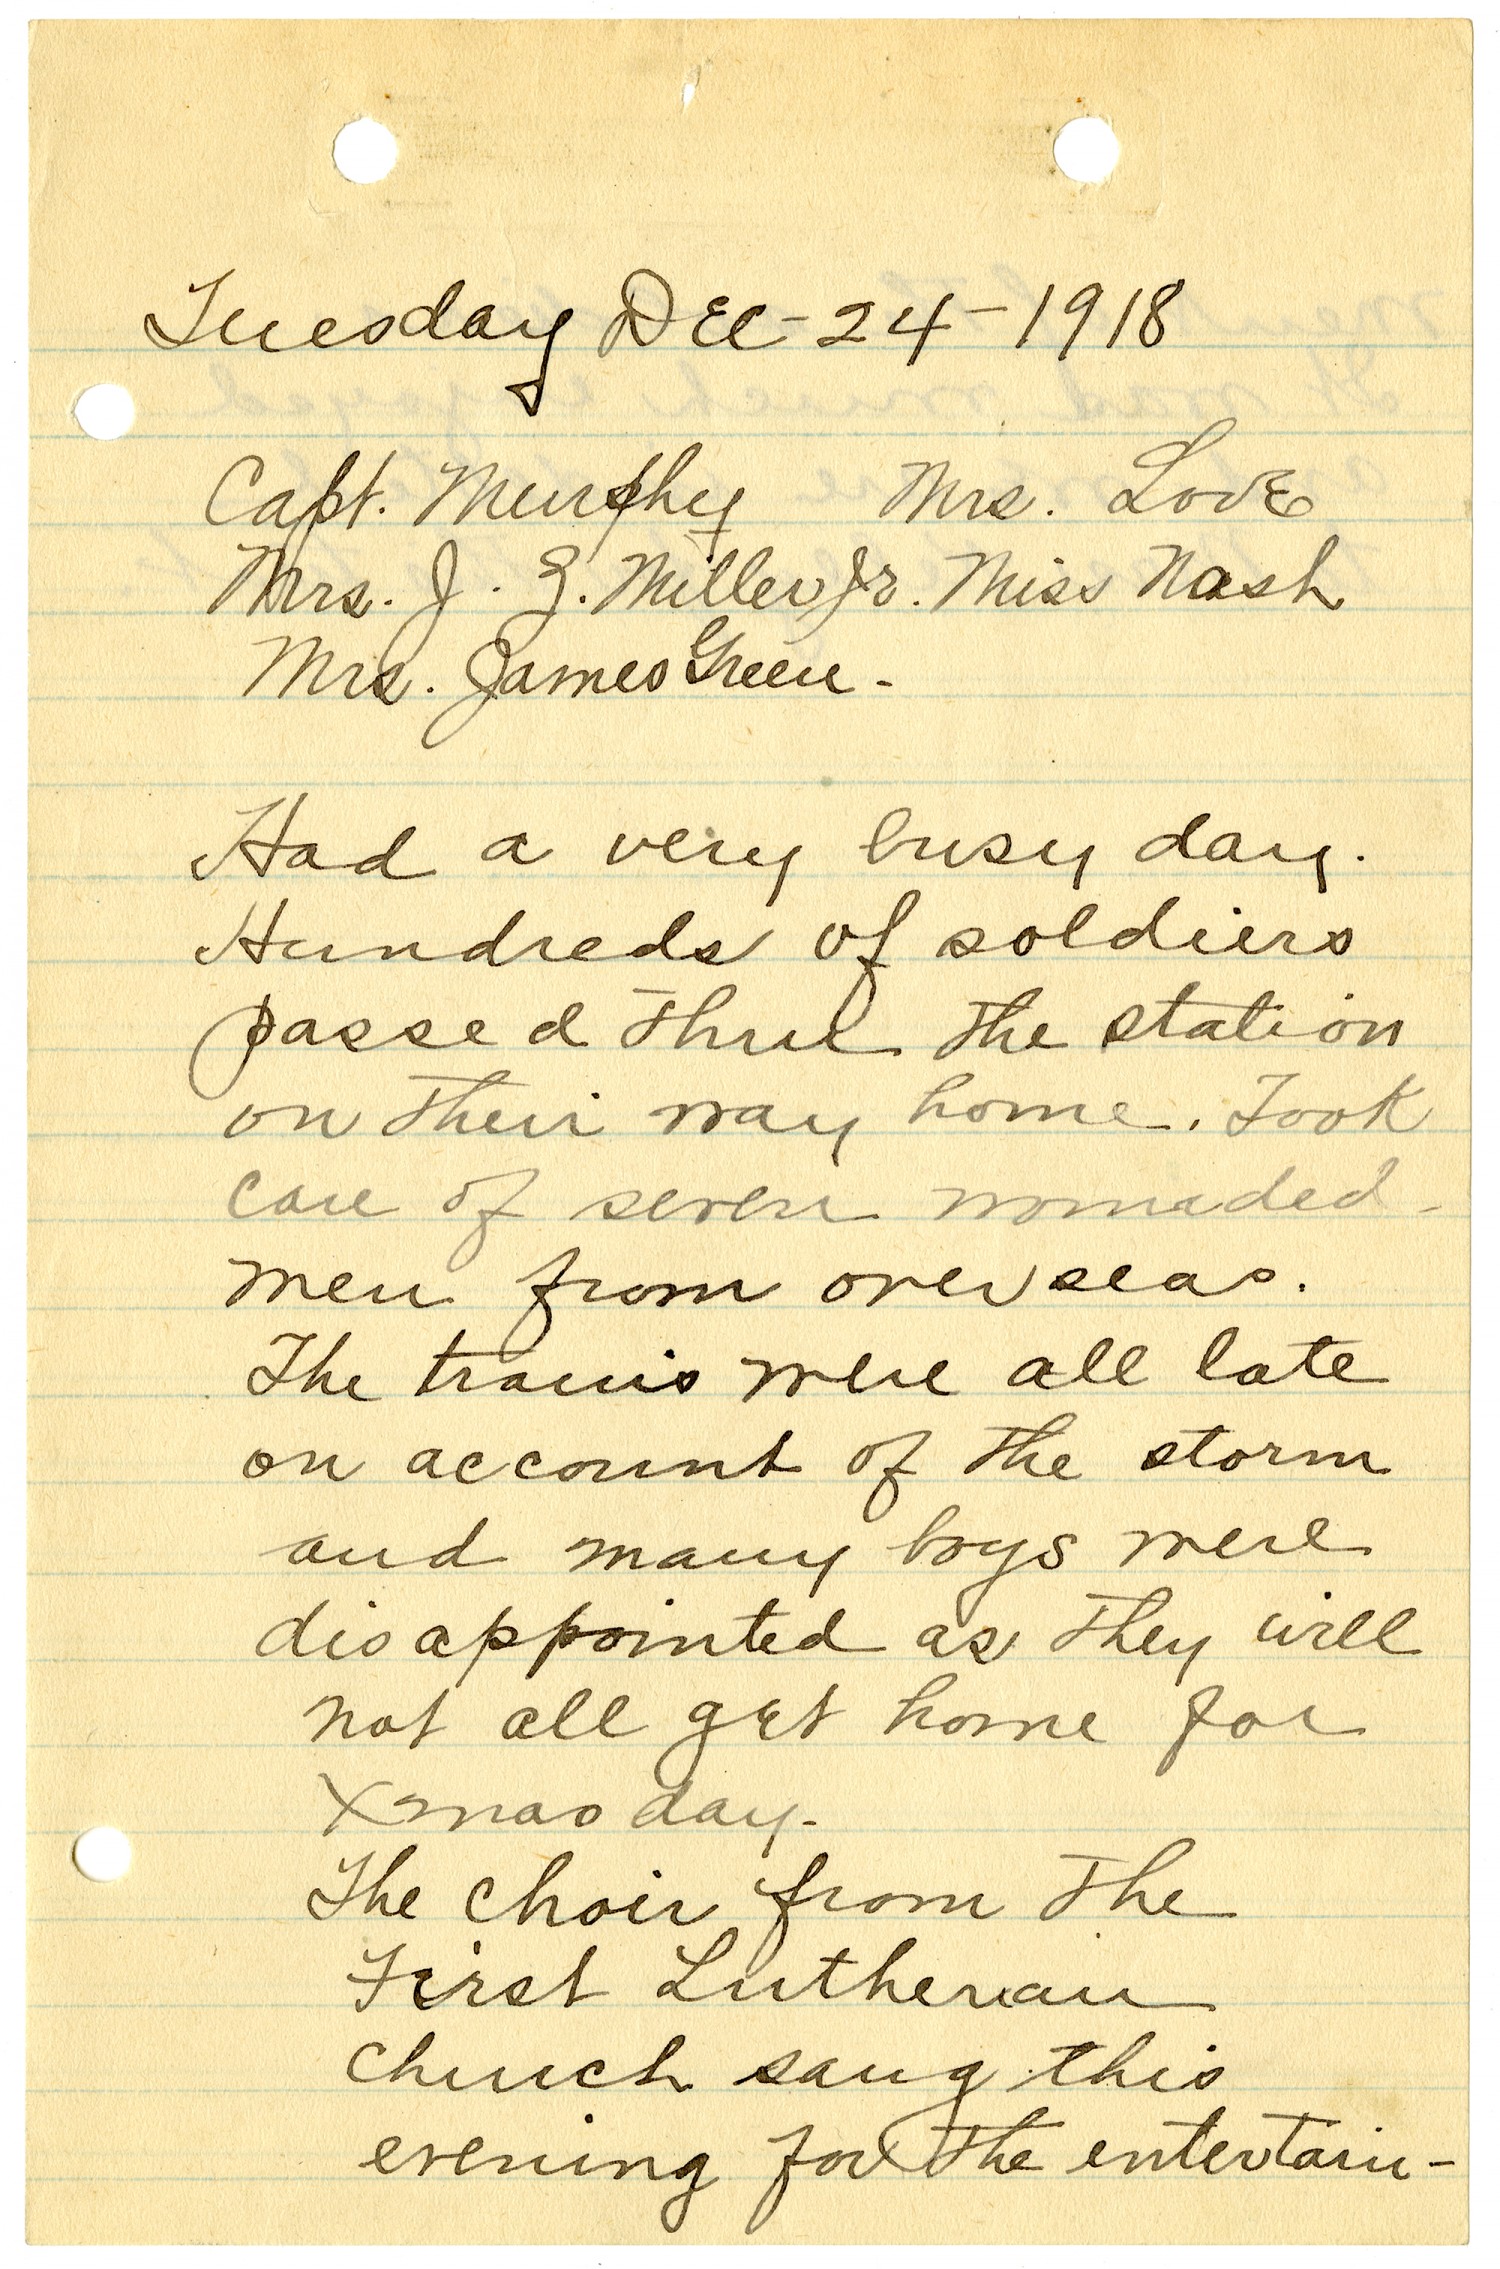 Tuesday Dec - 24 - 1918
Capt. Murphy Mrs. Love
Mrs. J. G. Miller Jr. Miss Nash
Mrs. James Green -
Had a very busy day.
Hundreds of soldiers
passed thru the station
on their way home. Took
care of seven womaded
men from overseas.
The trains were all late
on account of the storm
and many boys were
disappointed as they will
not all get home for
Xmas day.
The choir from the
First Lutheran
church sang this
evening for the entertain-